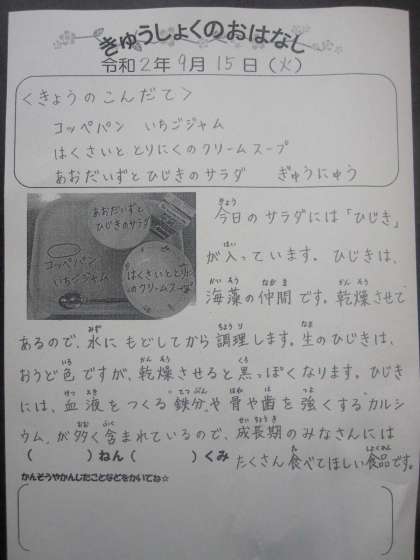 きゅうしょくのおはなし
令和2年9月15日(火)
<きょうのこんだて>
コッペパン いちごジャム
はくさいととりにくのクリームスープ
あおだいずとひじきのサラダ ぎゅうにゅう
あおだいずと
ひじきのサラダ
コッペパン
いちごジャム
はくさいととりにく
のクリームスープ
今日のサラダには「ひじき」
が入っています。ひじきは、
海藻の仲間です。乾燥させて
あるので、水にもどしてから調理します。生のひじきは、
おうど色ですが、乾燥させると黒っぽくなります。ひじき
には、血液をつくる鉄分や骨や歯を強くするカルシ
ウムが多く含まれているので、成長期のみなさんには
たくさん食べてほしい食品です。
( )ねん( )くみ
かんそうやかんじたことなどをかいてね☆